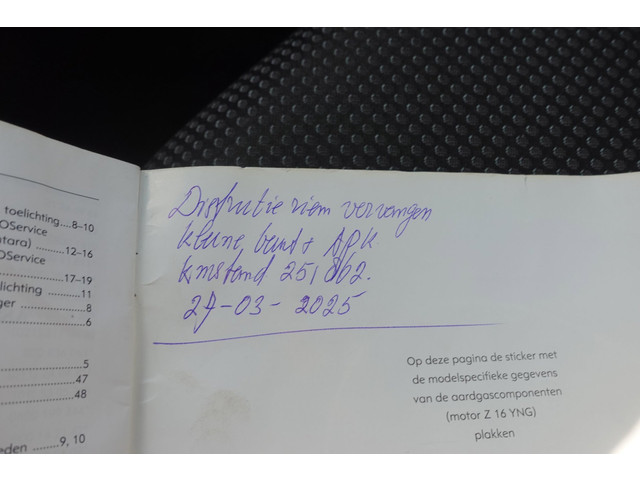 toelichting....8–10
OService
ntara) .........12–16
OService
.................17–19
lichting .............11
ger .....................8
..........................6
..........................5
........................47
........................48
eden .........9, 10
Distributie riem vervangen
kleine beurt + APK
kmstand 251862.
27-03-2025
Op deze pagina de sticker met
de modelspecifieke gegevens
van de aardgascomponenten
(motor Z 16 YNG)
plakken